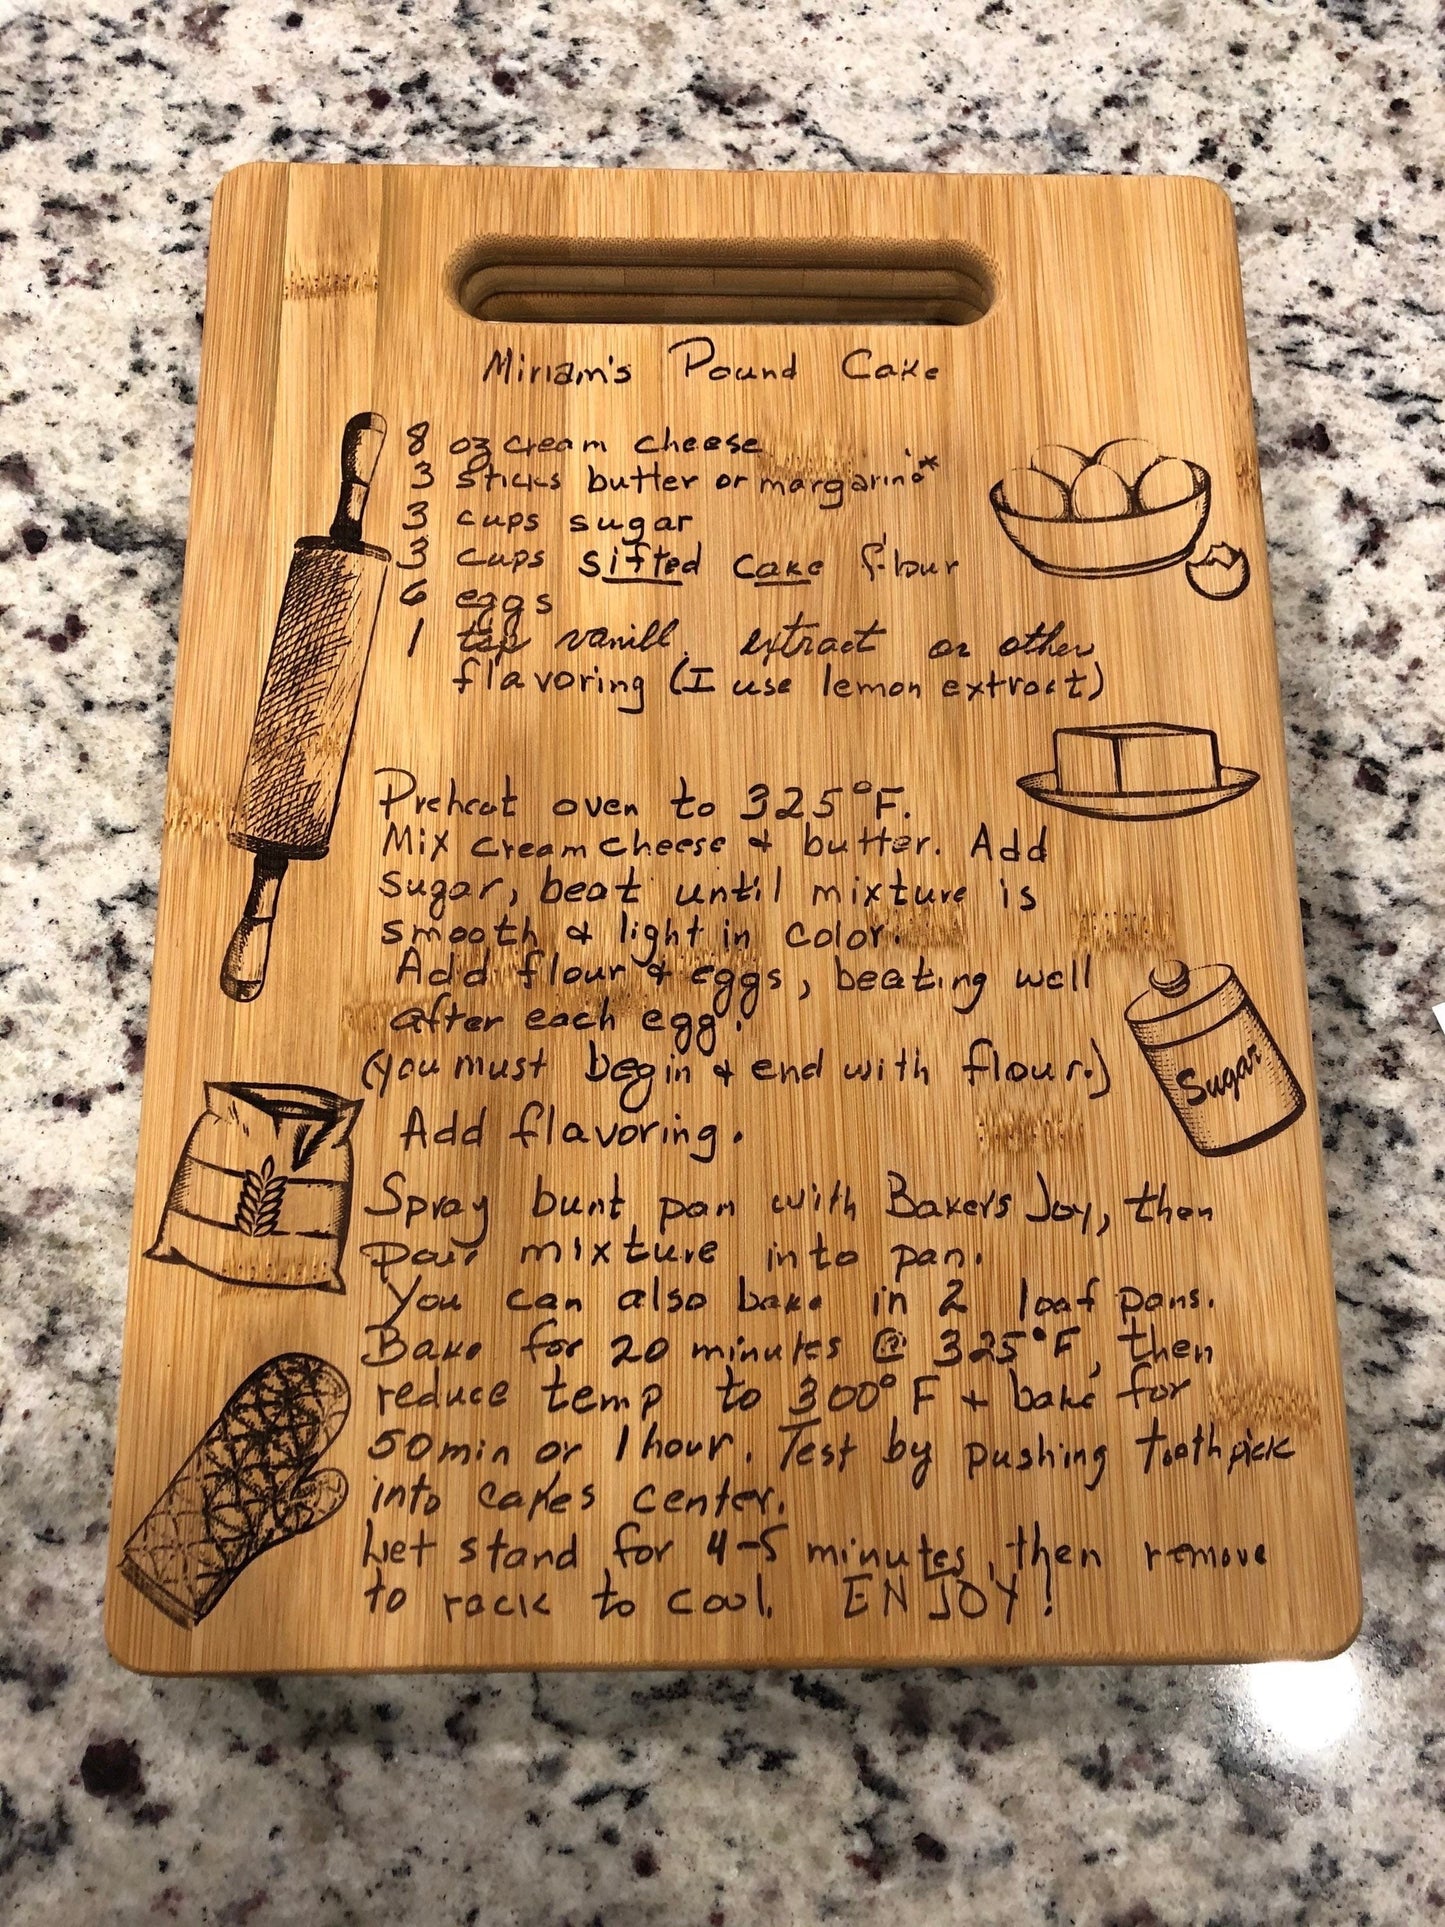 Miriam's Pound Cake
8 oz cream cheese
3 sticks butter or margarine*
3 cups sugar
3 cups sifted cake flour
6 eggs
1 tsp vanill. extract or other
flavoring (I use lemon extract)
Preheat oven to 325°F.
Mix cream cheese & butter. Add
sugar, beat until mixture is
smooth & light in color.
Add flour & eggs, beating well
after each egg.
(you must begin & end with flour.)
Add flavoring.
Sugar
Spray bunt pan with Bakers Joy, then
pour mixture into pan.
You can also bake in 2 loaf pans.
Bake for 20 minutes @ 325°F, then
reduce temp to 300°F + bake for
50 min or 1 hour. Test by pushing toothpick
into cakes center.
Let stand for 4-5 minutes, then remove
to rack to cool. ENJOY!